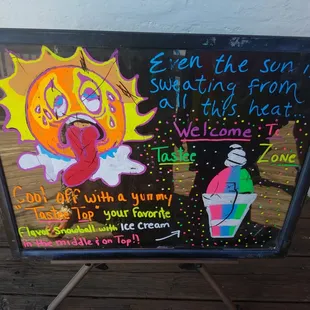 Even the sun is
sweating from
all this heat...
Welcome To
Tastee Zone
Cool off with a yummy
Tastee Top your favorite
Flavor Snowball with ICE Cream
in the middle & on Top!!